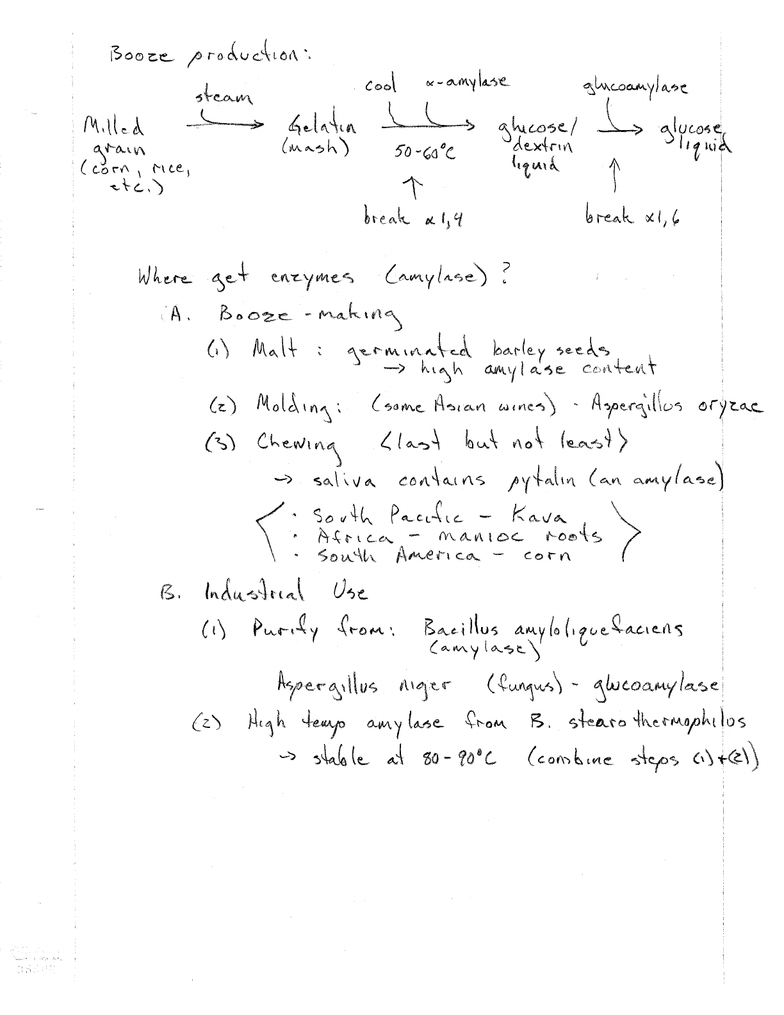 Booze production:
steam cool α-amylase glucoamylase
Milled → Gelatin → glucose/ → glucose
grain (mash) 50-60°C dextrin liquid
(corn, rice, liquid
etc.)
↑ ↑
break α1,4 break α1,6
Where get enzymes (amylase)?
A. Booze-making
(1) Malt: germinated barley seeds
→ high amylase content
(2) Molding: (some Asian wines) - Aspergillus oryzae
(3) Chewing <last but not least>
→ saliva contains pytalin (an amylase)
· South Pacific - Kava
· Africa - manioc roots
· South America - corn
B. Industrial Use
(1) Purify from: Bacillus amyloliquefaciens
(amylase)
Aspergillus niger (fungus) - glucoamylase
(2) High temp amylase from B. stearothermophilus
→ stable at 80-90°C (combine steps (1)+(2))